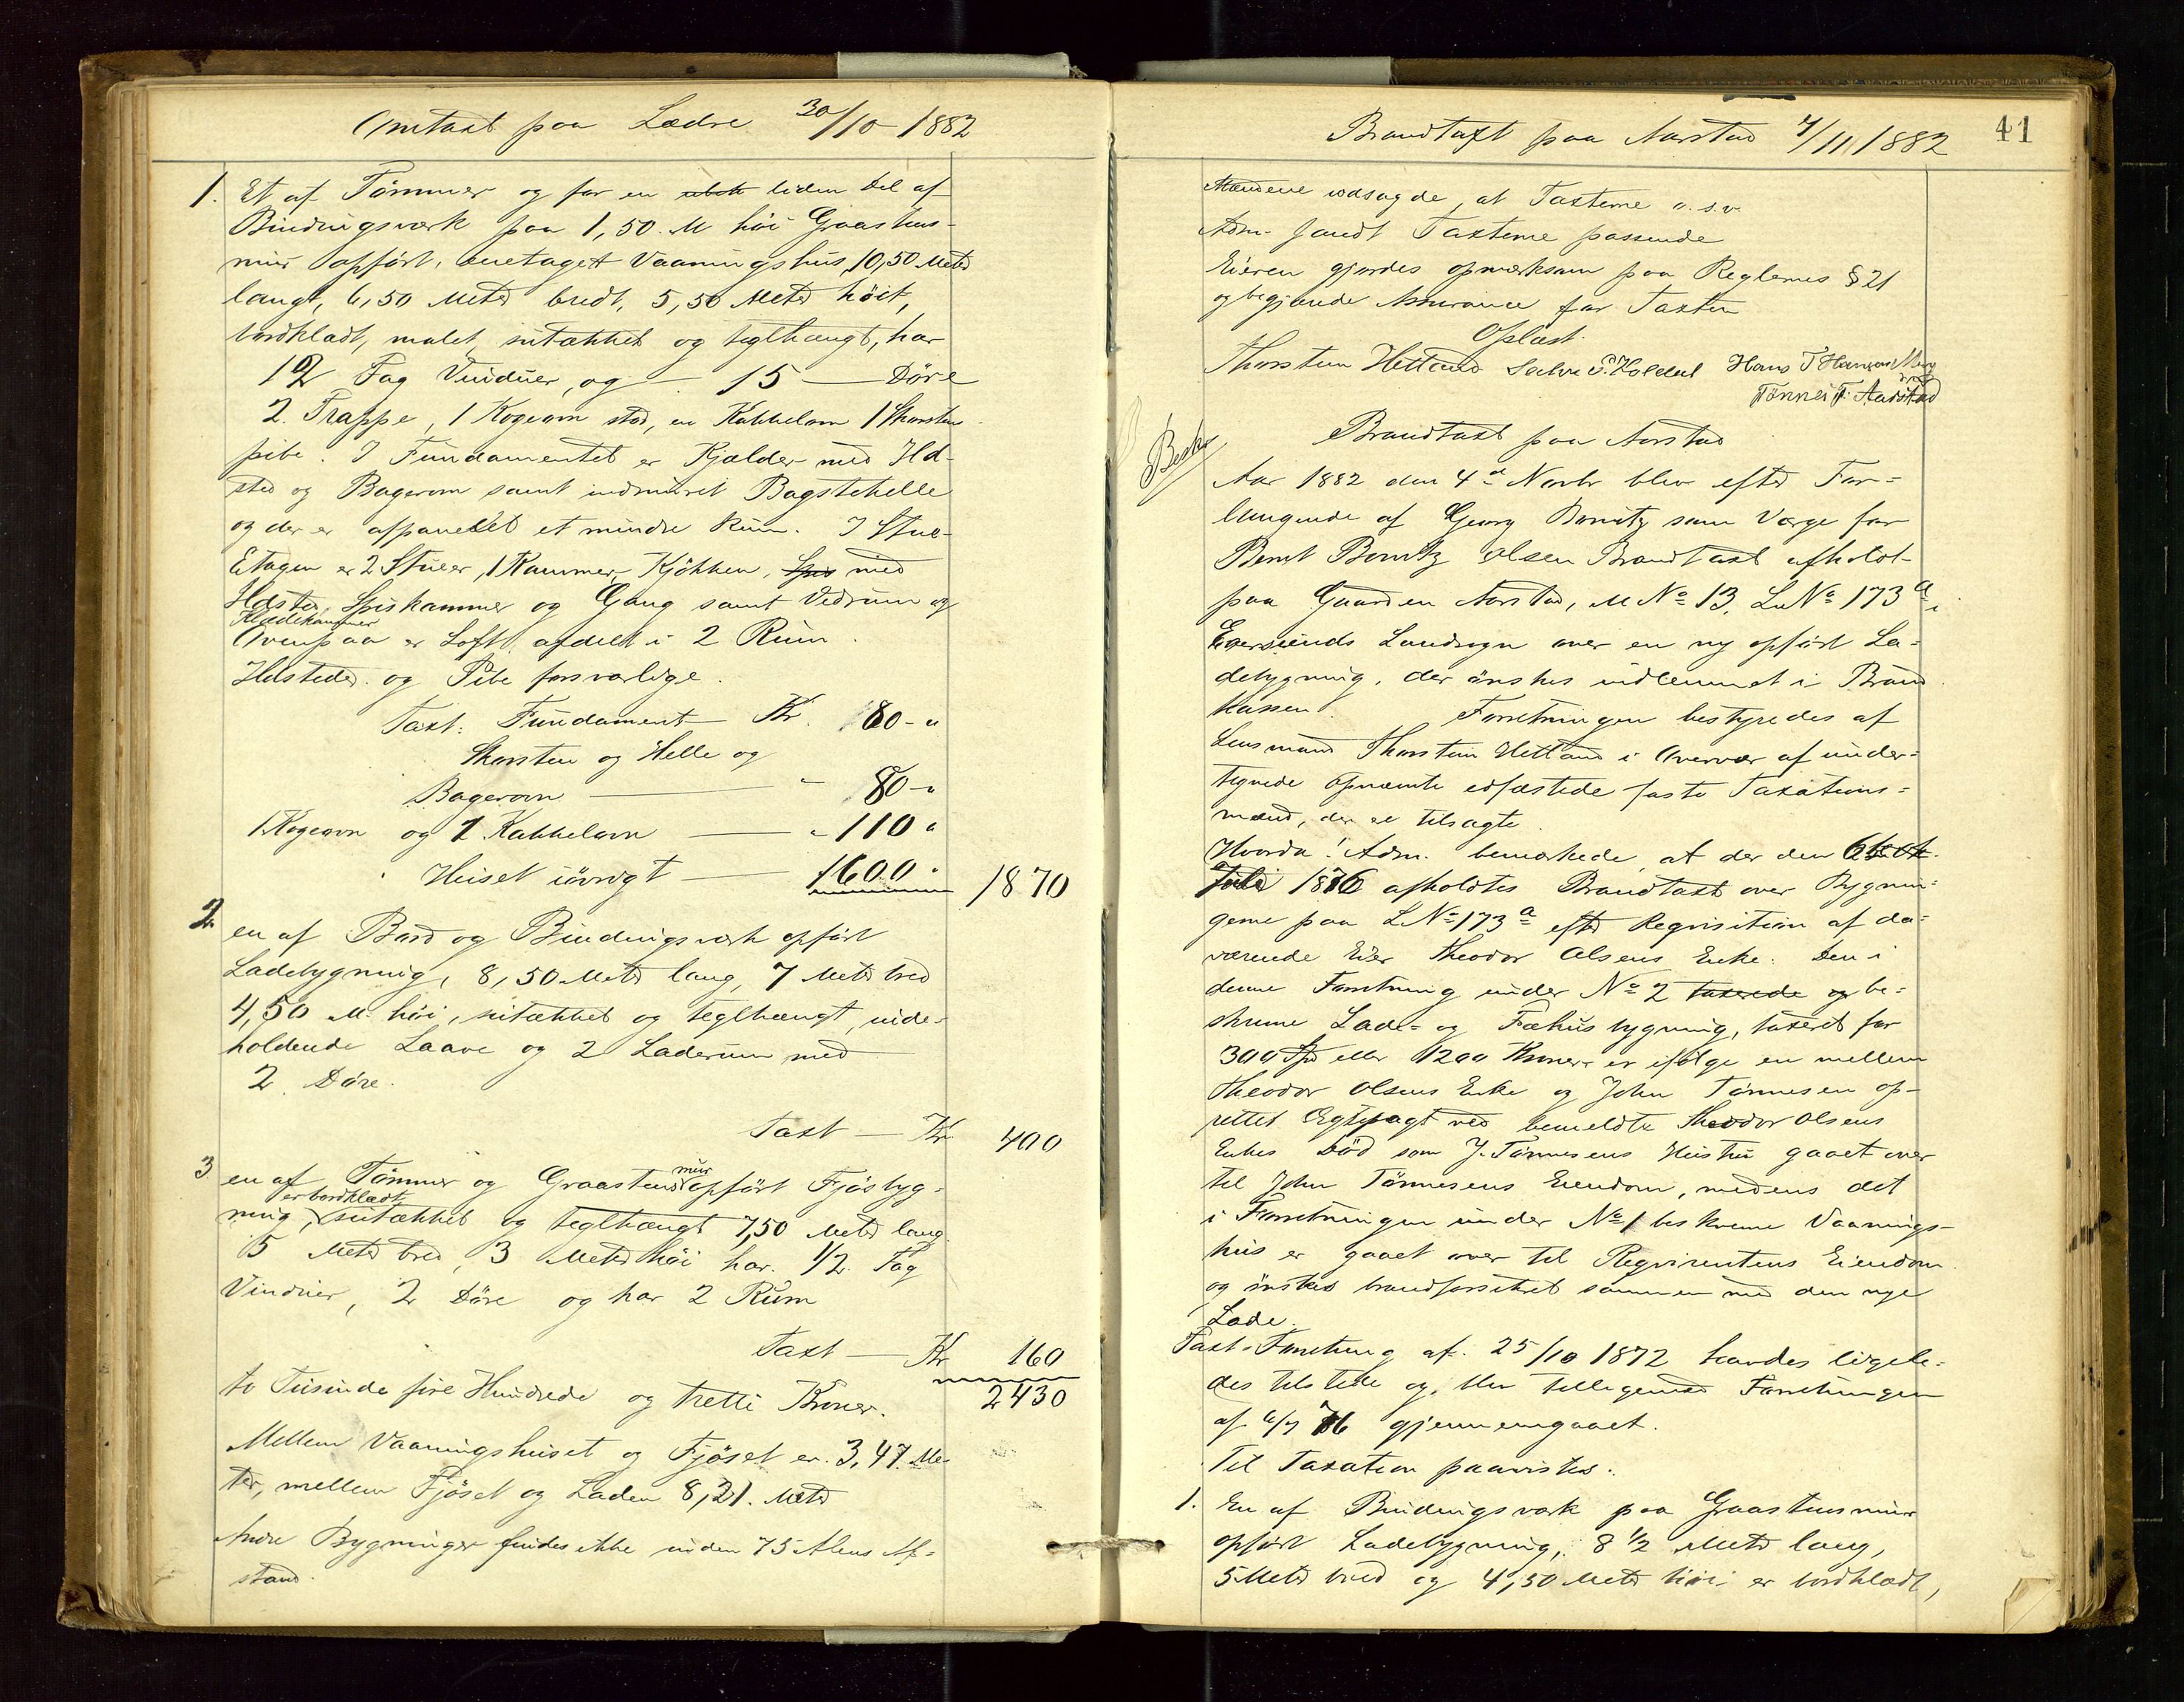 Omtaxt paa Lædre 30/10 1882
1. Et af Tömmer og for en liden Del af
Bindingsværk paa 1,50 M höi Graastens-
mur opfört, enetaget Vaaningshus, 10,50 Meter
langt, 6,50 Meter bredt, 5,50 Meter höit,
bordklædt, malet, sutækket og teglhængt, har
12 Fag Vinduer, og — 15 — Döre
2 Trappe, 1 Kogeovn sted, en Kakkelovn 1 Skorsten
pibe. I Fundamentet er Kjælder med Ild-
sted og Bagerovn samt indmuret Bagstehelle
og der er afpanelet et mindre Rum. I Stue-
Etagen er 2 Stuer, 1 Kammer, Kjökken, Spis med
Ildsted, Spiskammer og Gang samt Vedrum og
Klædekammer
Ovenpaa er Loft afdelt i 2 Rum.
Ildsteder og Pibe forsvarlige.
Taxt: Fundament Kr. 80 - "
Skorsten og Helle og
Bagerovn — " 80 - "
1 Kogeovn og 1 Kakkelovn — " 110 "
Huset iövrigt — 1600 " 1870
2 en af Bord og Bindingsværk opfört
Ladebygning, 8,50 Meter lang, 7 Meter bred
4,50 M. höi, sutækket og teglhængt, inde-
holdende Laave og 2 Laderum med
2 Döre.
Taxt — Kr. 400
3 en af Tömmer og Graastensmur opfört Fjösbyg-
er bordklædt
ning, sutækket og teglhængt 7,50 Meter lang
5 Meter bred, 3 Meter höi har 1/2 Fag
Vinduer, 2 Döre og har 2 Rum
Taxt — Kr 160
to Tusinde fire Hundrede og tretti Kroner. 2430
Mellem Vaaningshuset og Fjöset er 3,47 Me-
ter, mellem Fjöset og Laden 8,21. Meter
Andre Bygninger findes ikke inden 75 Alens Af-
stand.
Brandtaxt paa Aarstad 4/11 1882 41
Mændene udsagde, at Taxterne o.s.v.
Adm. fandt Taxterne passende
Eieren gjordes opmærksom paa Reglernes § 21
og begjærede Assurance for Taxten
Oplæst.
Thorsten Hetland Hans T Hansen
Tönnes T. Aarstad
Besk
Brandtaxt paa Aarstad
Aar 1882 den 4de Novbr blev efter For-
langende af Georg Bomitz som Værge for
Bernt Bomitz Olsen Brandtaxt afholdt
paa Gaarden Aarstad, M No 13, L No 173 a i
Egersunds Landsogn over en ny opfört La-
debygning, der önskes indlemmet i Brand
Kassen. Forretningen bestyredes af
Lensmand Thorsten Hetland i Overvær af under-
tegnede opnævnte edfæstede faste Taxations-
mænd, der er tilsagte.
Hvorda: Adm. bemærkede, at der den 6te
Juli 1876 afholdtes Brandtaxt over Bygnin-
gerne paa L No 173 a efter Requisition af da-
værende Eier Theodor Olsens Enke. Den i
denne Forretning under No 2 taxerede og be-
skrevne Lade- og Fæhusbygning, taxeret for
300 Spd eller 1200 Kroner er ifölge en mellem
Theodor Olsens Enke og John Tönnesen op-
rettet Ægtepagt ved bemeldte Theodor Olsens
Enkes Död som J. Tönnesens Hustru gaaet over
til John Tönnesens Eiendom, medens det
i Forretningen under No 1 beskrevne Vaanings-
hus er gaaet over til Requirentens Eiendom
og önskes brandforsikret sammen med den nye
Lade.
Taxt-Forretning af 25/10 1872 havdes ligele-
des tilstede og blev tilligemed Forretningen
af 6/7 76 gjennemgaaet.
Til Taxation paavistes:
1. En af Bindingsværk paa Graastensmur
opfört Ladebygning, 8 1/2 Meter lang,
5 Meter bred og 4,50 Meter höi er bordklædt,